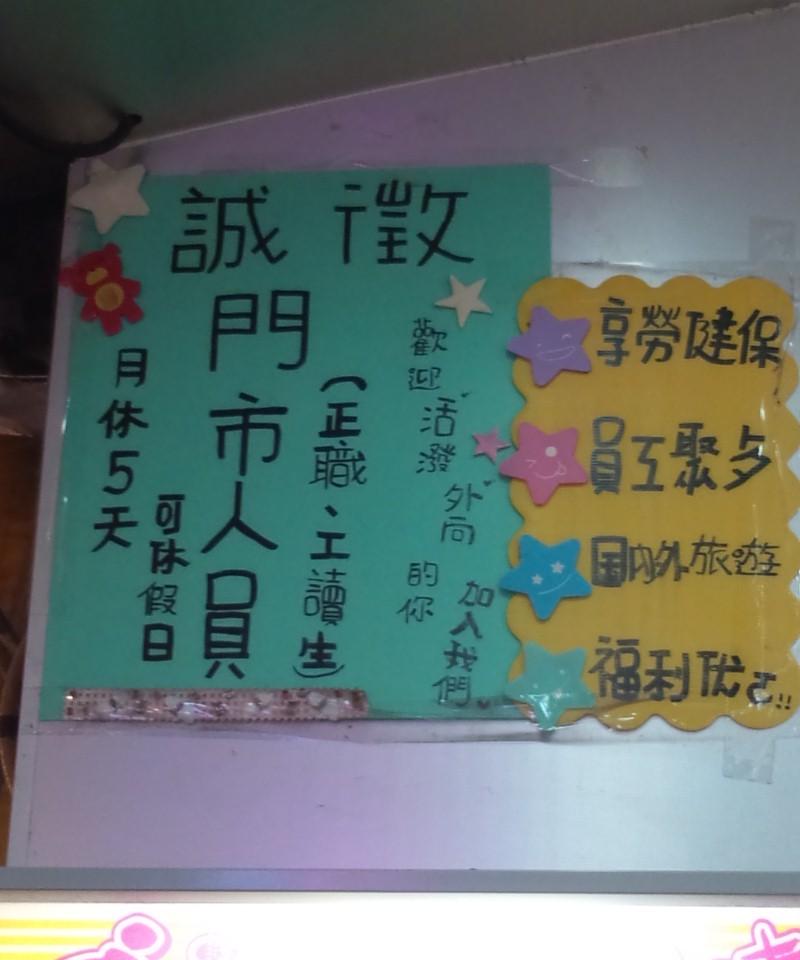 誠徵
門市人員
(正職、工讀生)
月休5天
可休假日
歡迎
活潑
外向
的你
加入我們
享勞健保
員工聚夕
国內外旅遊
福利优ㄛ!!